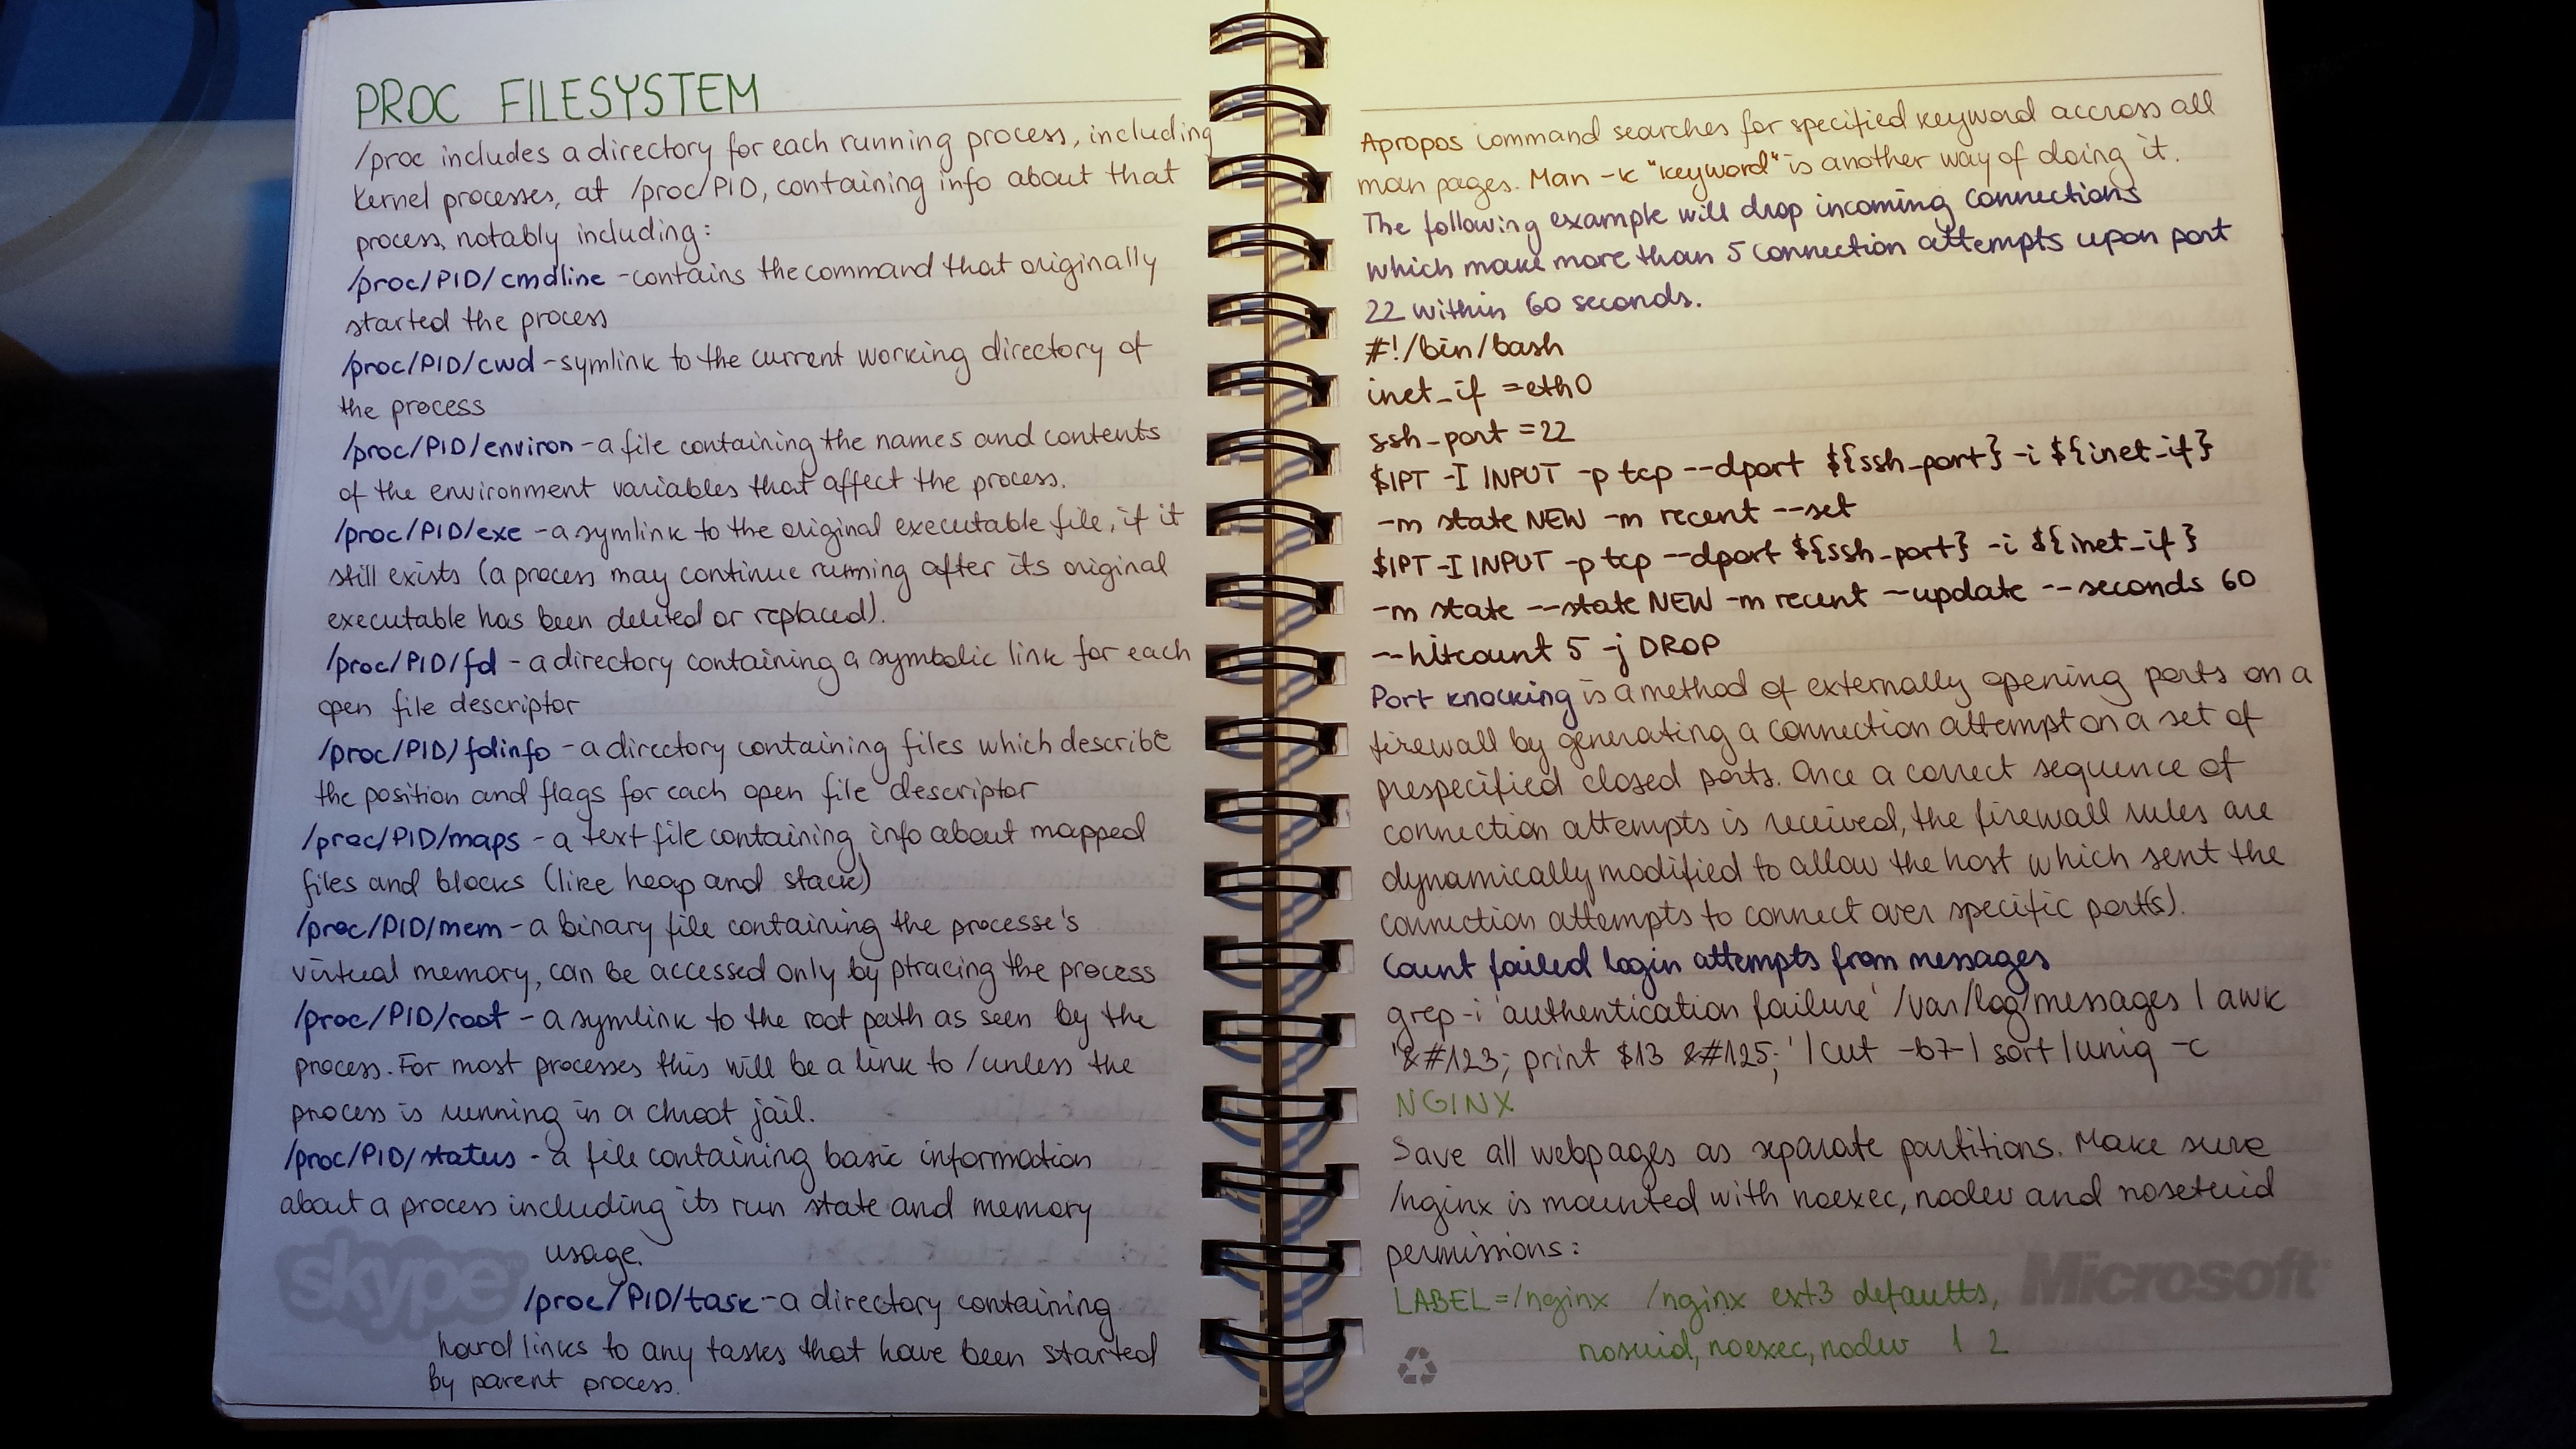 PROC FILESYSTEM
/proc includes a directory for each running process, including
kernel processes, at /proc/PID, containing info about that
process, notably including:
/proc/PID/cmdline - contains the command that originally
started the process
/proc/PID/cwd - symlink to the current working directory of
the process
/proc/PID/environ - a file containing the names and contents
of the environment variables that affect the process.
/proc/PID/exe - a symlink to the original executable file, if it
still exists (a process may continue running after its original
executable has been deleted or replaced).
/proc/PID/fd - a directory containing a symbolic link for each
open file descriptor
/proc/PID/fdinfo - a directory containing files which describe
the position and flags for each open file descriptor
/proc/PID/maps - a text file containing info about mapped
files and blocks (like heap and stack)
/proc/PID/mem - a binary file containing the processe's
virtual memory, can be accessed only by ptracing the process
/proc/PID/root - a symlink to the root path as seen by the
process. For most processes this will be a link to / unless the
process is running in a chroot jail.
/proc/PID/status - a file containing basic information
about a process including its run state and memory
usage.
/proc/PID/task - a directory containing
hard links to any tasks that have been started
by parent process.
skype™
Apropos command searches for specified keyword accross all
man pages. Man -k "keyword" is another way of doing it.
The following example will drop incoming connections
which make more than 5 connection attempts upon port
22 within 60 seconds.
#!/bin/bash
inet_if =eth0
ssh_port =22
$IPT -I INPUT -p tcp --dport ${ssh_port} -i ${inet_if}
-m state NEW -m recent --set
$IPT -I INPUT -p tcp --dport ${ssh_port} -i ${inet_if}
-m state --state NEW -m recent --update --seconds 60
--hitcount 5 -j DROP
Port knocking is a method of externally opening ports on a
firewall by generating a connection attempt on a set of
prespecified closed ports. Once a correct sequence of
connection attempts is received, the firewall rules are
dynamically modified to allow the host which sent the
connection attempts to connect over specific port(s).
Count failed login attempts from messages
grep -i 'authentication failure' /var/log/messages | awk
'&#123; print $13 &#125;' | cut -b7- | sort | uniq -c
NGINX
Save all webpages as separate partitions. Make sure
/nginx is mounted with noexec, nodev and nosetuid
permissions:
LABEL=/nginx /nginx ext3 defaults,
nosuid, noexec, nodev 1 2
Microsoft